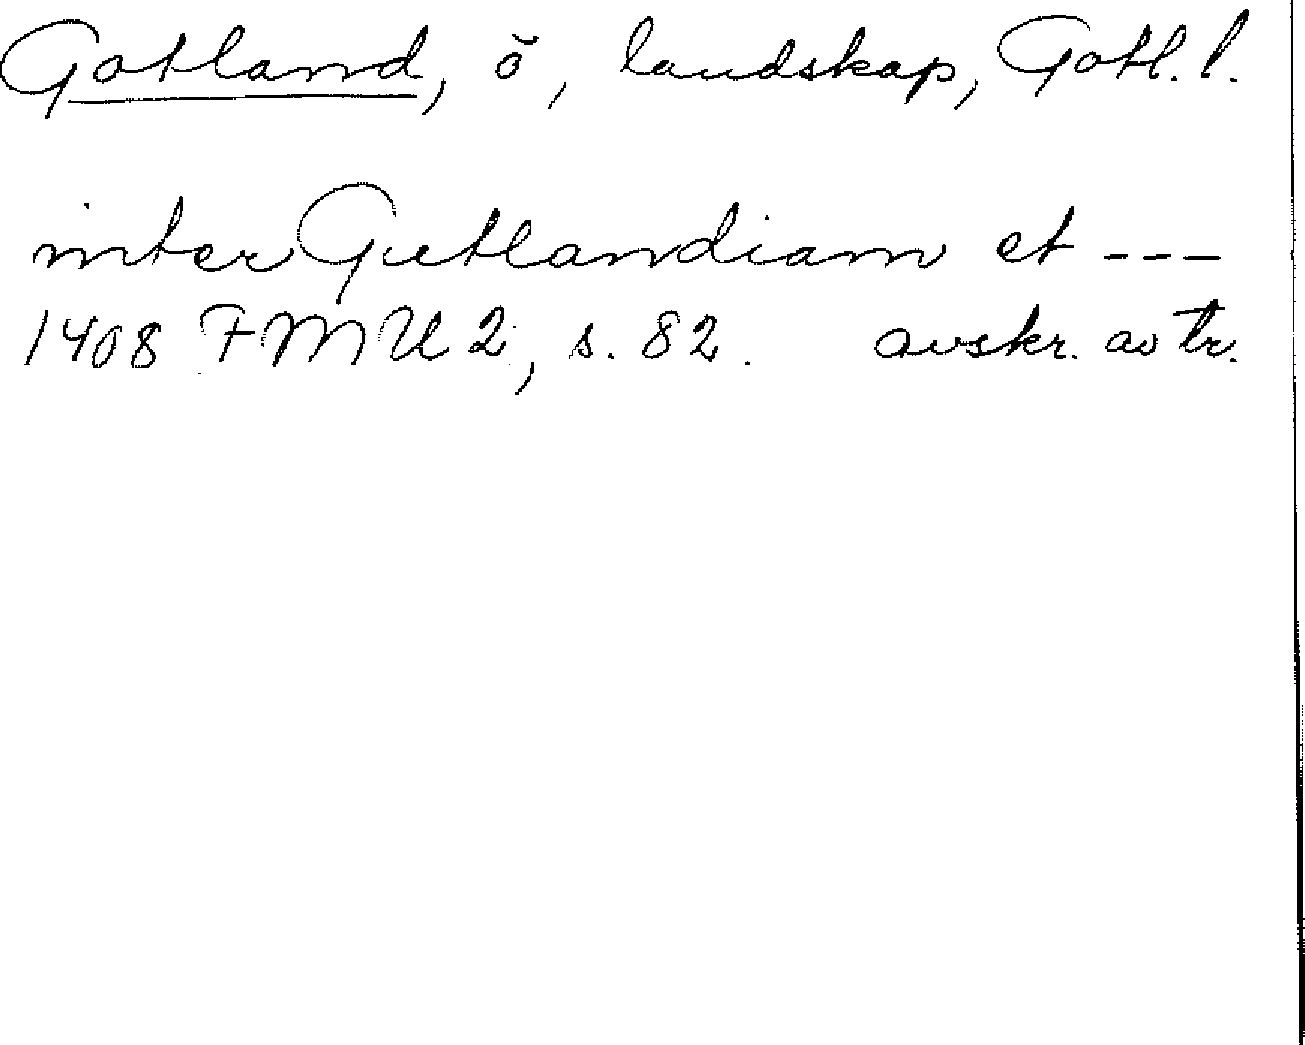 Gotland, ö, landskap, Gotl. l.
inter Gutlandiam et ---
1408 FMU 2, s. 82. avskr. av tr.